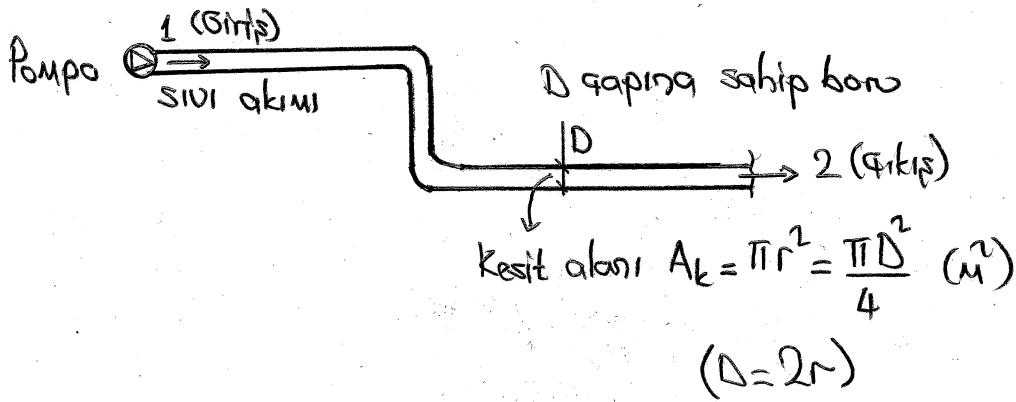 1 (Giriş)
Pompa
SIVI akımı
D çapına sahip boru
D
2 (Çıkış)
Kesit alanı A_k = πr² = πD²/4 (m²)
(D=2r)